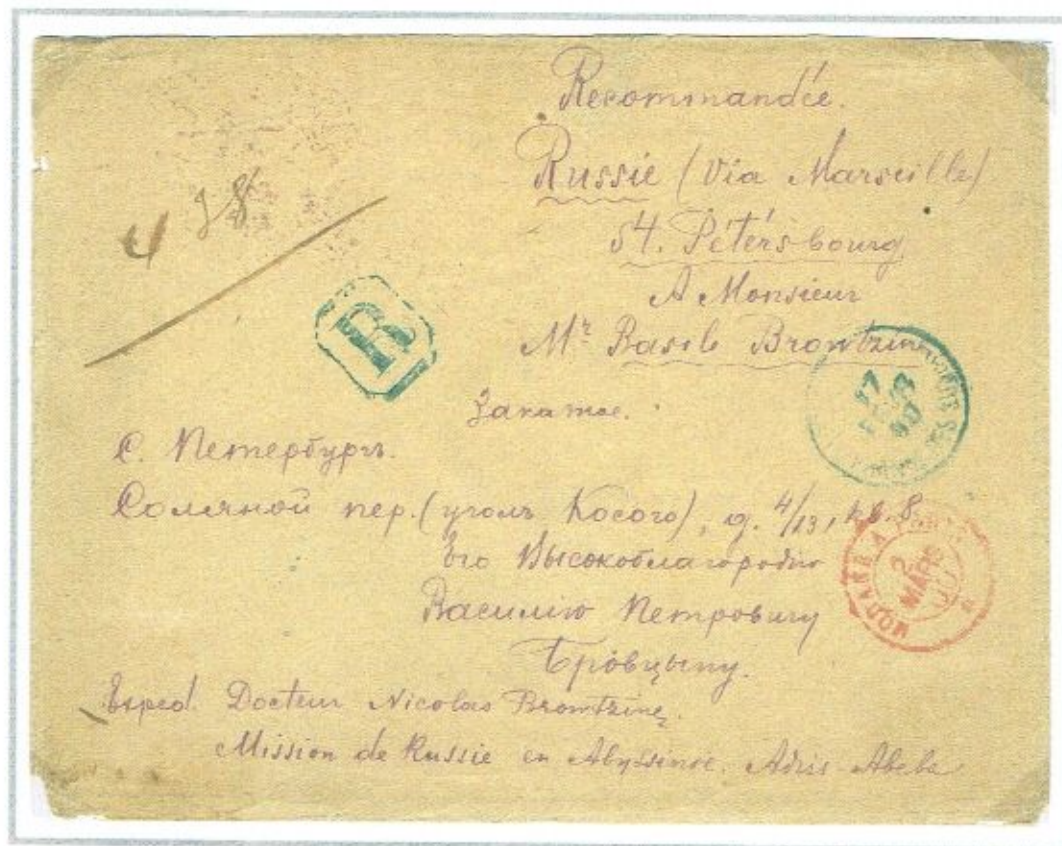 Recommandée.
Russie (Via Marseille)
St. Pétersbourg
A Monsieur
Mr Basile Browtzine
R
Заказное.
С. Петербургъ.
Соляной пер. (уголъ Косого), д. 4/13, кв. 8.
Его Высокоблагородію
Василію Петровичу
Бровцыну.
Exped. Docteur Nicolas Browtzine,
Mission de Russie en Abyssinie. Adis-Abeba